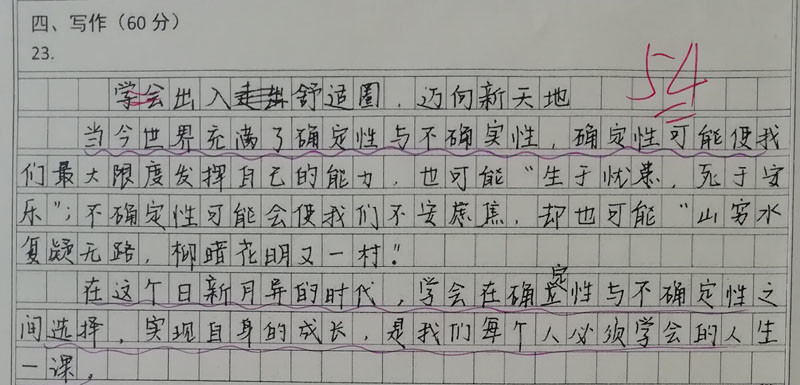 四、写作（60分）
23.
54
学会出入舒适圈，迈向新天地
当今世界充满了确定性与不确实性，确定性可能使我
们最大限度发挥自己的能力，也可能“生于忧患，死于安
乐”；不确定性可能会使我们不安焦，却也可能“山穷水
复疑无路，柳暗花明又一村。”
在这个日新月异的时代，学会在确定性与不确定性之
间选择，实现自身的成长，是我们每个人必须学会的人生
一课。